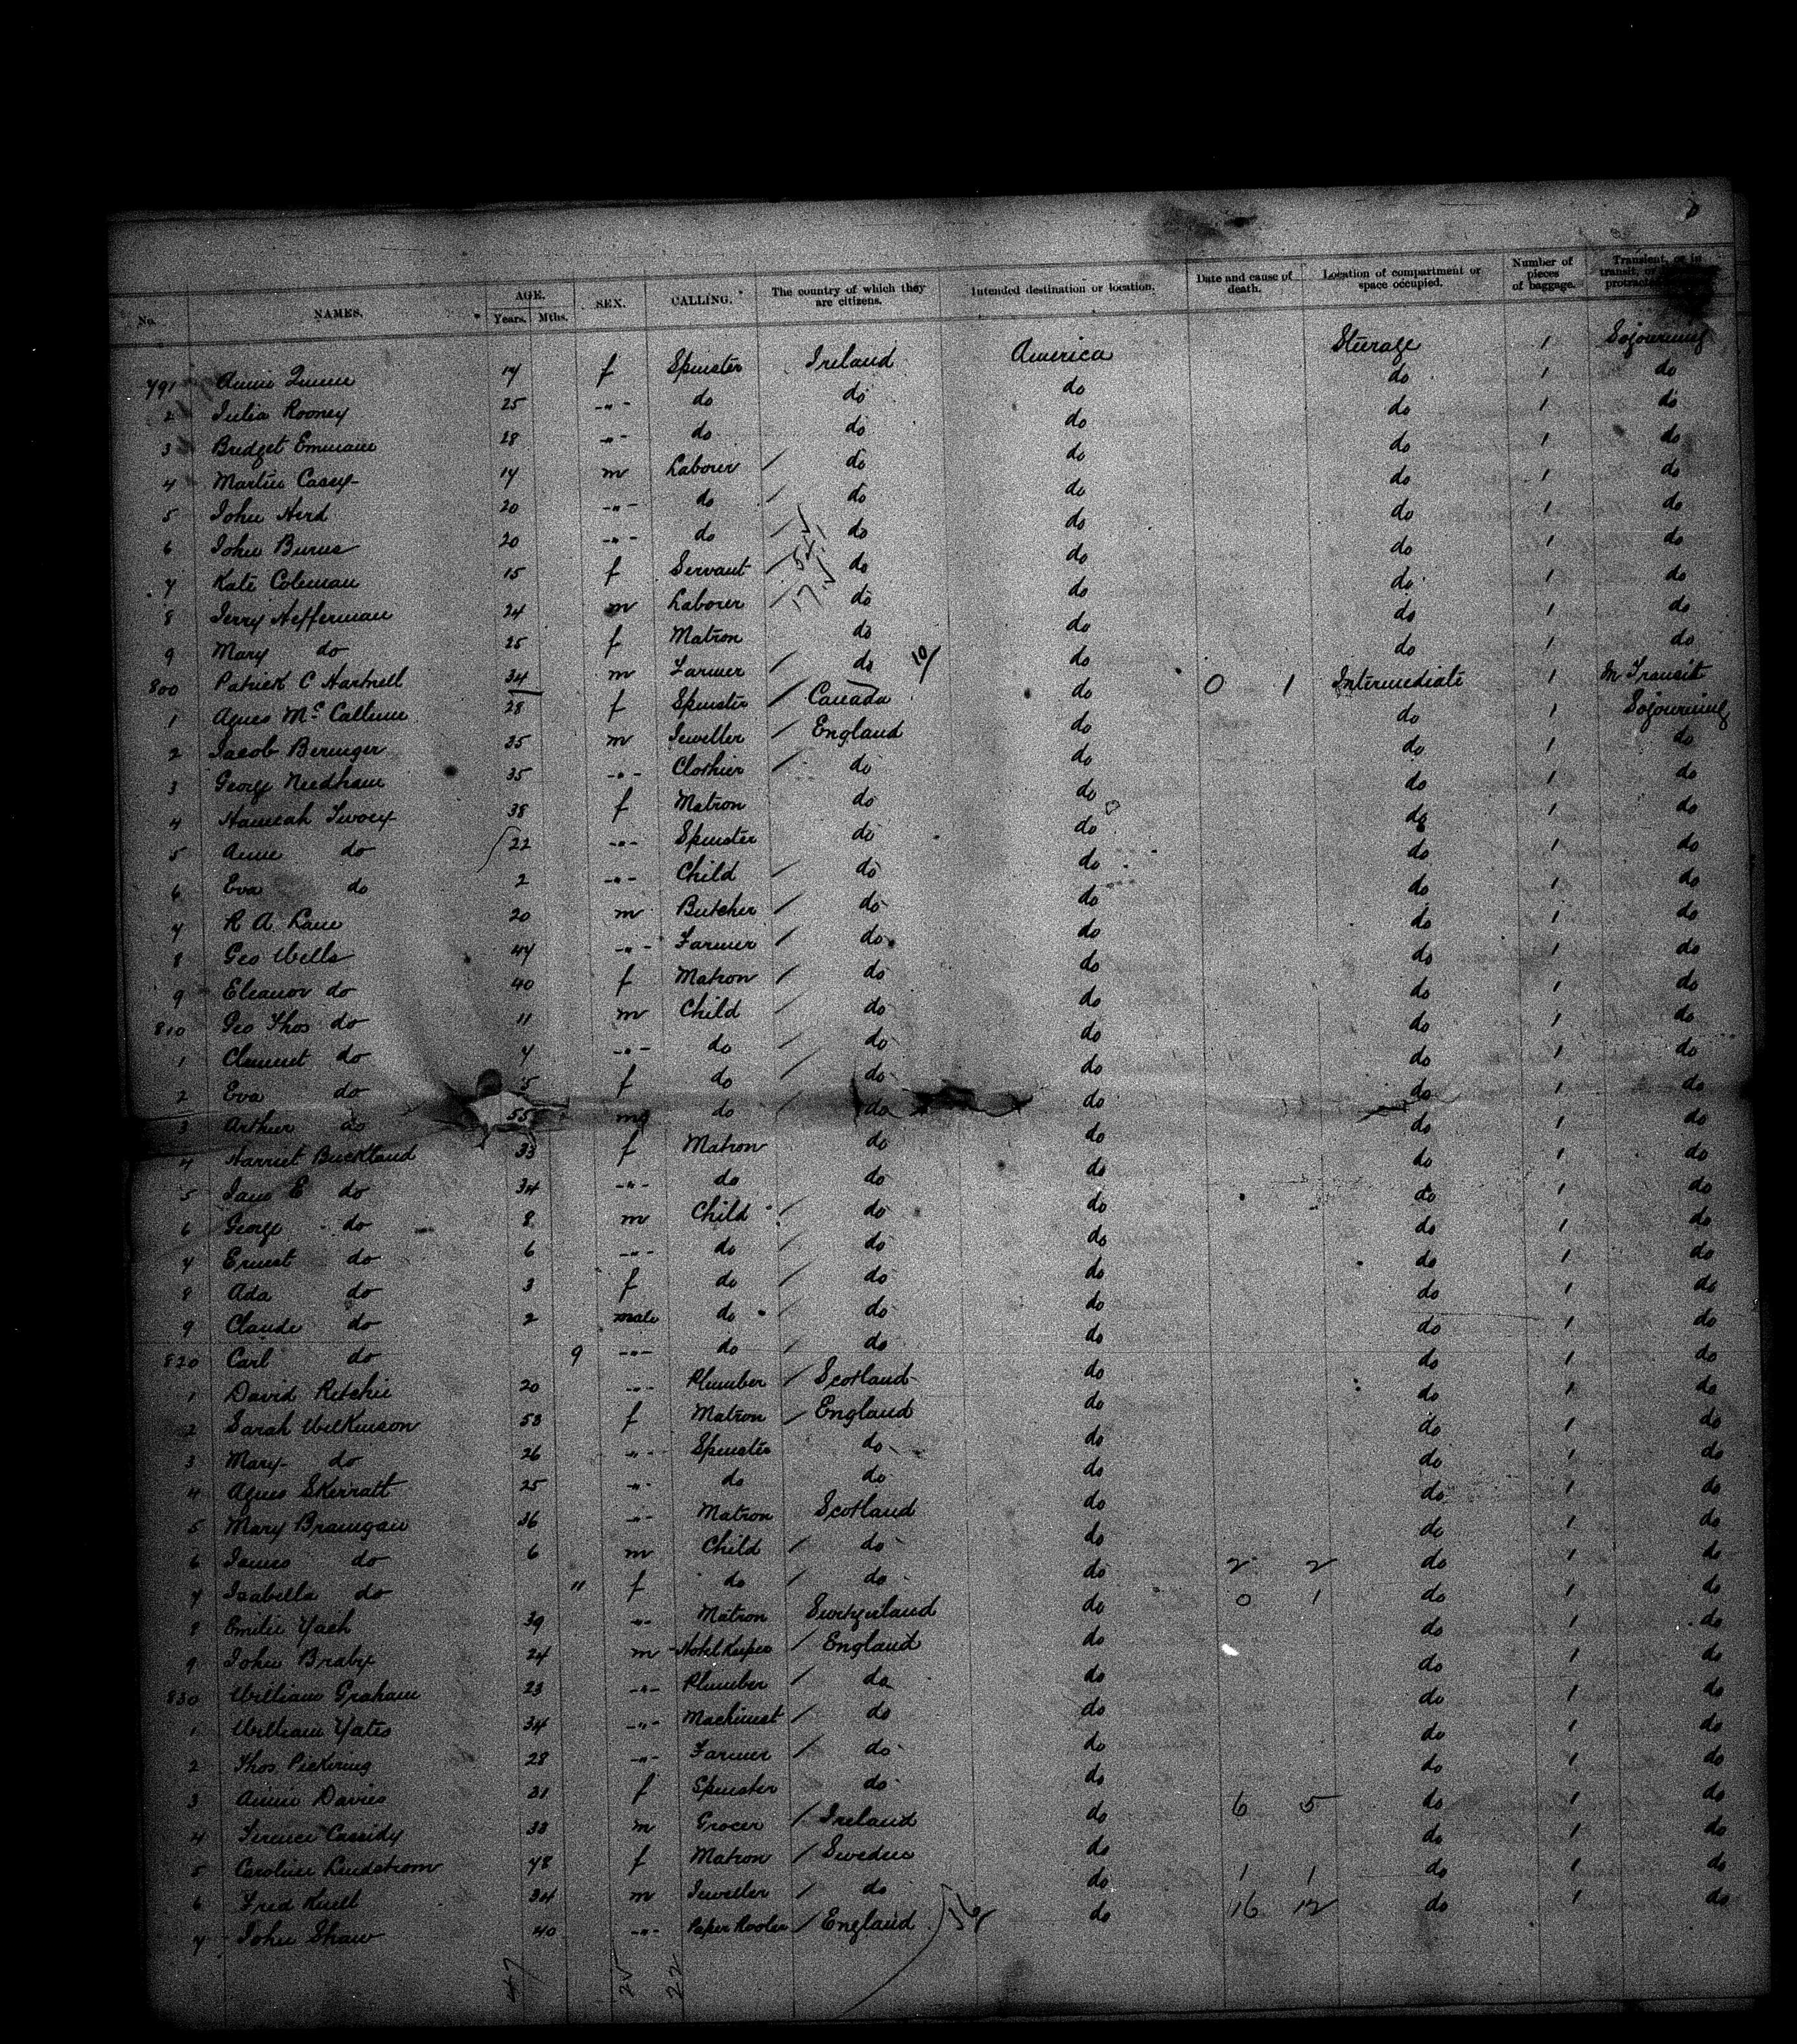 No. NAMES. AGE. Years. Mths. SEX. CALLING. The country of which they are citizens. Intended destination or location. Date and cause of death. Location of compartment or space occupied. Number of pieces of baggage. Transient, or in transit, or protracted
791 Annie Quinn 17 f Spinster Ireland America Sturage 1 Sojourning
2 Julia Rooney 25 -"- do do do do 1 do
3 Bridget 28 -"- do do do do 1 do
4 Martin Casey 17 m Laborer / do do do 1 do
5 John Herd 20 -"- do / do do do 1 do
6 John Burns 20 -"- do / do do do 1 do
7 Kate Coleman 15 f Servant / do do do 1 do
8 Jerry Hefferman 24 m Laborer / do do do 1 do
9 Mary do 25 f Matron do do do 1 do
800 Patrick C Hartnell 34 m Farmer / do 10/ do do 1 do
1 Agnes McCallum 28 f Spinster / Canada do 0 1 Intermediate 1 In Transit
2 Jacob Beringer 35 m Jeweller / England do do 1 Sojourning
3 George Needham 35 -"- Clothier / do do do 1 do
4 Hannah 38 f Matron do do do 1 do
5 Anne do 22 -"- Spinster do do do 1 do
6 Eva do 2 -"- Child / do do do 1 do
7 R A Lane 20 m Butcher / do do do 1 do
8 Geo Wells 47 -"- Farmer / do do do 1 do
9 Eleanor do 40 f Matron / do do do 1 do
810 Geo Thos do 11 m Child / do do do 1 do
1 Clement do 7 -"- do / do do do 1 do
2 Eva do 5 f do / do do do 1 do
3 Arthur do m do / do do do 1 do
4 Harriet Buckland 33 f Matron do do do 1 do
5 Jane E do 34 -"- do do do do 1 do
6 George do 8 m Child / do do do 1 do
7 Ernest do 6 -"- do / do do do 1 do
8 Ada do 3 f do / do do do 1 do
9 Claude do 2 male do / do do do 1 do
820 Carl do 9 -"- do / do do do 1 do
1 David Ritchie 20 -"- Plumber / Scotland do do 1 do
2 Sarah Wilkinson 58 f Matron / England do do 1 do
3 Mary do 26 -"- Spinster do do do 1 do
4 Agnes Skerratt 25 -"- do do do do 1 do
5 Mary Branigan 36 -"- Matron Scotland do do 1 do
6 James do 6 m Child / do do do 1 do
7 Isabella do 11 f do / do do 2 2 do 1 do
8 Emilie 39 -"- Matron Switzerland do 0 1 do 1 do
9 John Braby 24 m Hotel Keeper / England do do 1 do
830 William Graham 23 -"- Plumber / do do do 1 do
1 William Yates 34 -"- Machinist / do do do 1 do
2 Thos. Pickering 28 -"- Farmer / do do do 1 do
3 Annie Davies 31 f Spinster do do do 1 do
4 Terence Cassidy 33 m Grocer / Ireland do 6 5 do 1 do
5 Caroline Lindstrom 48 f Matron / Sweden do do 1 do
6 Fred 34 m Jeweller / do do 1 1 do 1 do
7 John Shaw 40 -"- Paper Rooler / England do 16 12 do 1 do
47 25 22